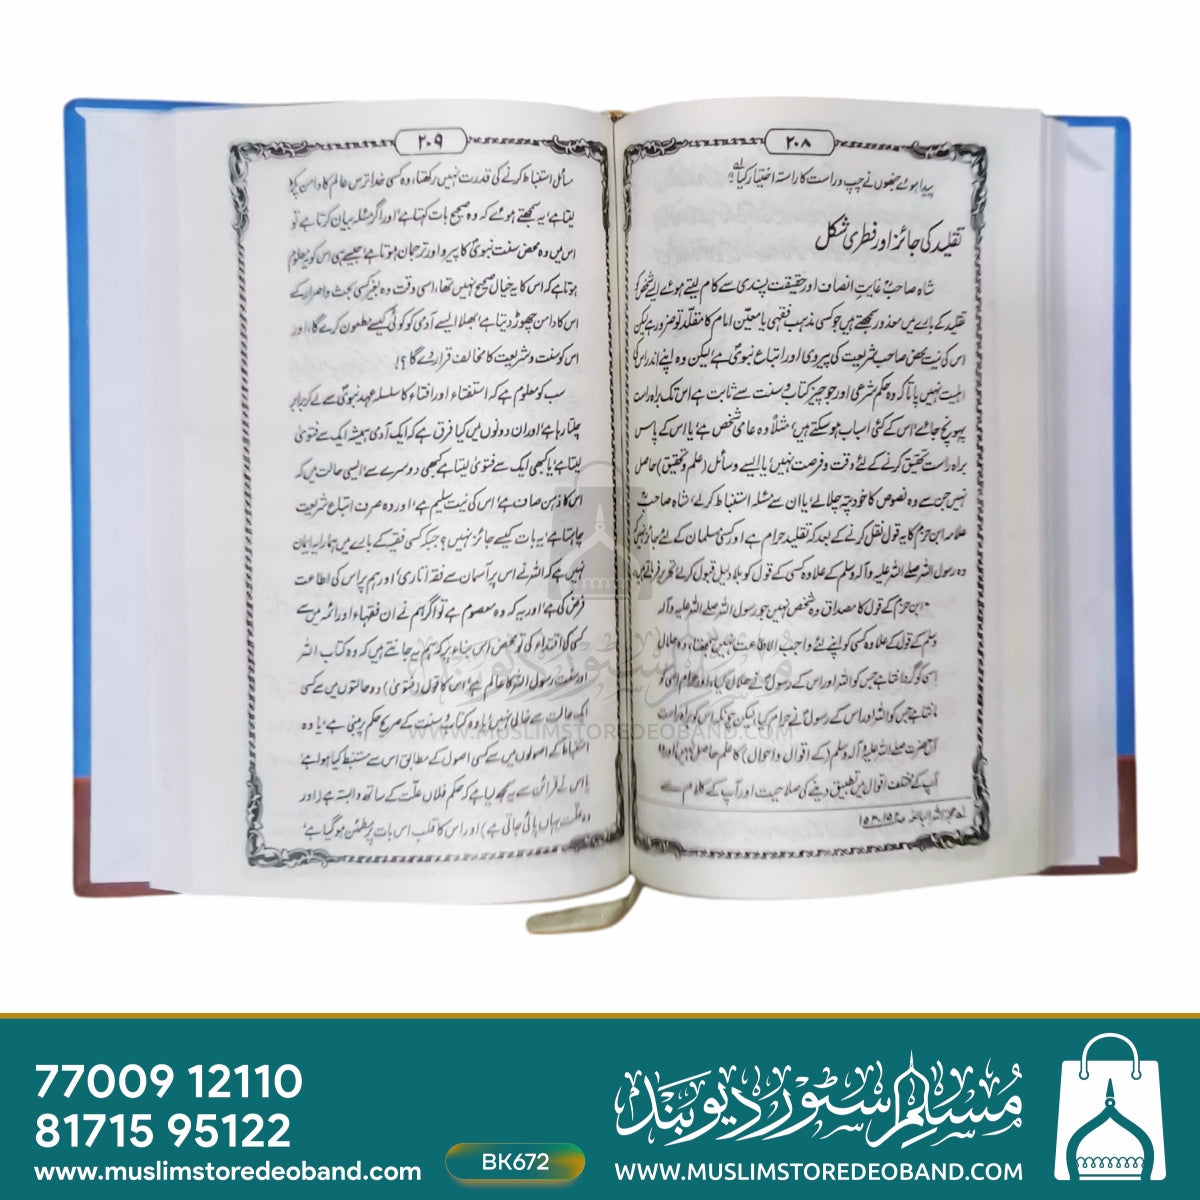 ۲۰۸
پیدا ہوئے جنھوں نے چپ و راست کا راستہ اختیار کیا ہے
تقلید کی جائز اور فطری شکل
شاہ صاحبؒ غایتِ انصاف اور حقیقت پسندی سے کام لیتے ہوئے ایسے شخص کو
تقلید کے بارے میں معذور سمجھتے ہیں جو کسی مذہب فقہی یا معیّن امام کا مقلّد تو ضرور ہے لیکن
اس کی نیت محض صاحب شریعت کی پیروی اور اتباع نبویؐ ہے لیکن وہ اپنے اندر اس کی
اہلیت نہیں پاتا کہ وہ حکم شرعی اور جو چیز کتاب و سنت سے ثابت ہے اس تک براہ راست
پہونچ جائے، اس کے کئی اسباب ہو سکتے ہیں، مثلاً وہ عامی شخص ہے، یا اس کے پاس
براہ راست تحقیق کرنے کے لئے وقت و فرصت نہیں، یا ایسے وسائل (علم و تحقیق) حاصل
نہیں جن سے وہ نصوص کا خود پتہ چلا لے، یا ان سے مسئلہ استنباط کرلے، شاہ صاحبؒ
علامہ ابن حزم کا یہ قول نقل کرنے کے بعد کہ تقلید حرام ہے اور کسی مسلمان کے لئے جائز نہیں کہ
وہ رسول اللہ صلے اللہ علیہ وآلہ وسلم کے علاوہ کسی کے قول کو بلا دلیل قبول کرلے تحریر فرماتے ہیں
"ابن حزم کے قول کا مصداق وہ شخص نہیں جو رسول اللہ صلے اللہ علیہ وآلہ
وسلم کے قول کے علاوہ کسی کو اپنے لئے واجب الاطاعت نہیں سمجھتا، وہ حلال
اسی کو گردانتا ہے جس کو اللہ اور اس کے رسولؐ نے حلال کیا، اور حرام اسی کو
مانتا ہے جس کو اللہ اور اس کے رسولؐ نے حرام کیا، لیکن چونکہ اس کو براہ راست
آں حضرت صلے اللہ علیہ وآلہ وسلم (کے اقوال و احوال) کا علم حاصل نہیں اور وہ
آپ کے مختلف اقوال میں تطبیق دینے کی صلاحیت اور آپ کے کلام سے
لہ حجۃ اللہ البالغہ
۲۰۹
مسائل استنباط کرنے کی قدرت نہیں رکھتا، وہ کسی خدا ترس عالم کا دامن پکڑ
لیتا ہے، یہ سمجھتے ہوئے کہ وہ صحیح بات کہتا ہے، اور اگر مسئلہ بیان کرتا ہے تو
اس میں وہ محض سنت نبویؐ کا پیرو اور ترجمان ہوتا ہے، جیسے ہی اس کو یہ معلوم
ہوتا ہے کہ اس کا یہ خیال صحیح نہیں تھا، اسی وقت وہ بغیر کسی بحث و اصرار کے
اس کا دامن چھوڑ دیتا ہے، بھلا ایسے آدمی کو کوئی کیسے مطعون کرے گا، اور
اس کو سنت و شریعت کا مخالف قرار دے گا؟!
سب کو معلوم ہے کہ استفتاء اور افتاء کا سلسلہ عہد نبویؐ سے لے کر برابر
چلتا رہا ہے، اور ان دونوں میں کیا فرق ہے کہ ایک آدمی ہمیشہ ایک سے فتویٰ
لیتا ہے، یا کبھی ایک سے فتویٰ لیتا ہے کبھی دوسرے سے، ایسی حالت میں کہ
اس کا ذہن صاف ہے، اس کی نیت سلیم ہے، اور وہ صرف اتباع شریعت
چاہتا ہے، یہ بات کیسے جائز نہیں؟ جبکہ کسی فقیہ کے بارے میں ہمارا یہ ایمان
نہیں ہے کہ اللہ نے اس پر آسمان سے فقہ اتاری، اور ہم پر اس کی اطاعت
فرض کی ہے، اور یہ کہ وہ معصوم ہے تو اگر ہم نے ان فقہاء اور ائمہ میں سے
کسی کی اقتداء کی تو محض اس بناء پر کہ ہم یہ جانتے ہیں کہ وہ کتاب اللہ
اور سنت رسول اللہ کا عالم ہے، اس کا قول (فتویٰ) دو حالتوں میں سے کسی
ایک حالت سے خالی نہیں، یا وہ کتاب و سنت کے صریح حکم پر مبنی ہے، یا وہ
استنباط کے اصولوں میں سے کسی اصول کے مطابق اس سے مستنبط کیا ہوا ہے،
یا اس نے قرائن سے یہ سمجھ لیا ہے کہ حکم فلاں علّت کے ساتھ وابستہ ہے (اور
وہ علّت یہاں پائی جاتی ہے) اور اس کا قلب اس بات پر مطمئن ہو گیا ہے،
مسلم سٹور دیوبند
WWW.MUSLIMSTOREDEOBAND.COM
77009 12110
81715 95122
www.muslimstoredeoband.com
BK672
مسلم سٹور دیوبند
WWW.MUSLIMSTOREDEOBAND.COM